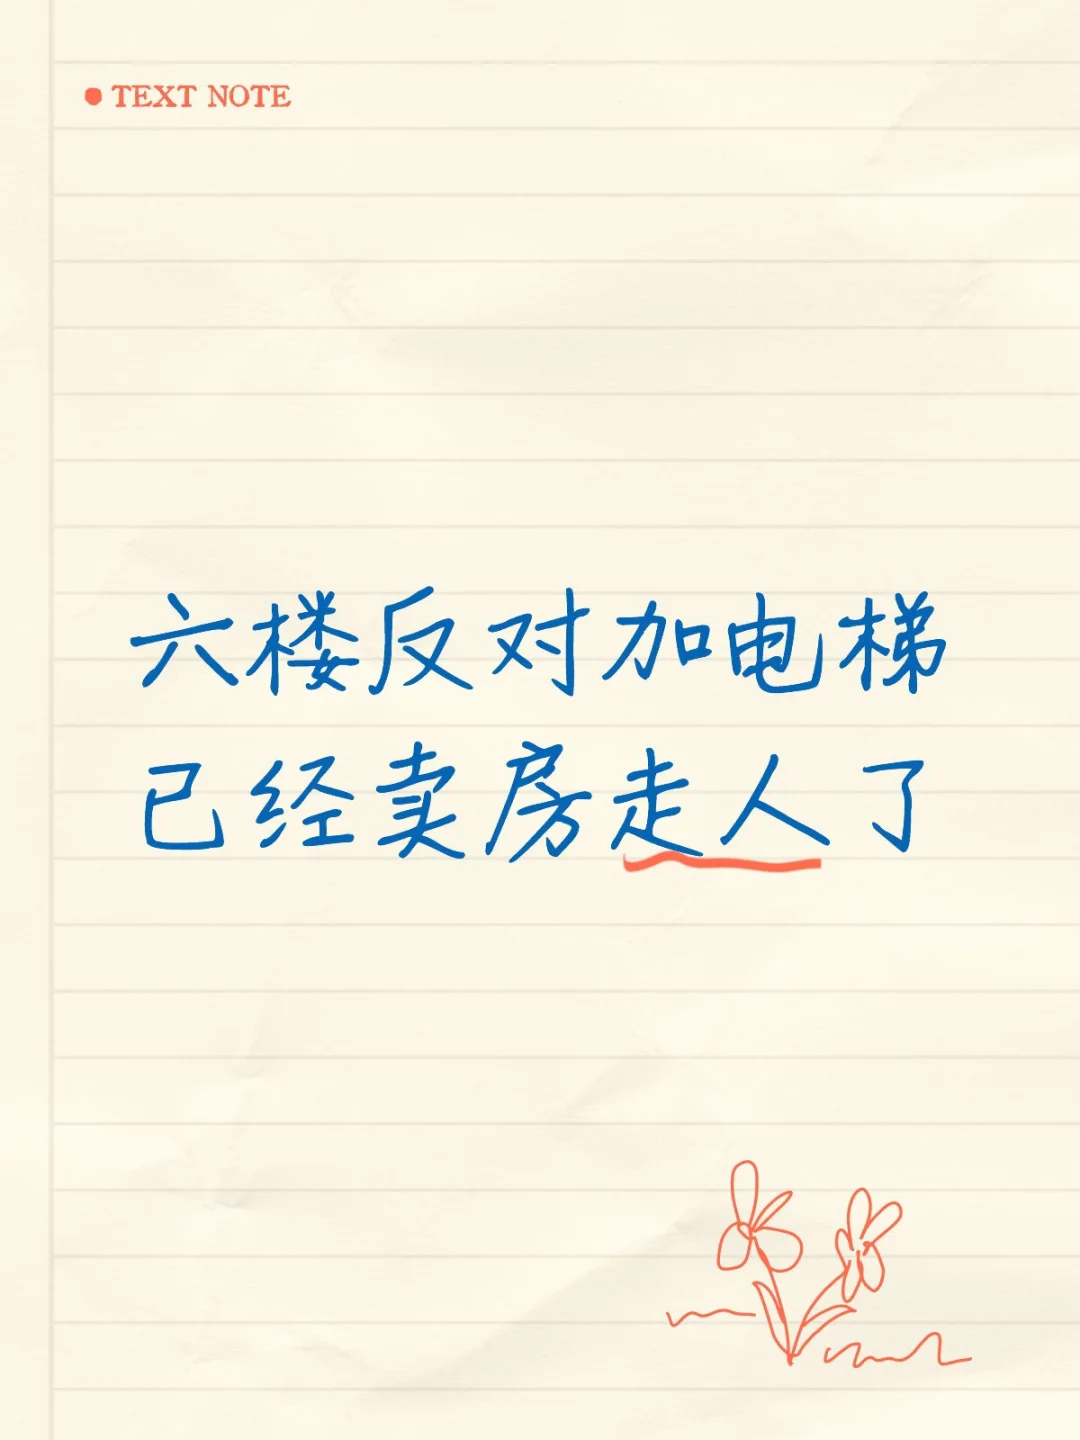 TEXT NOTE
六楼反对加电梯
已经卖房走人了